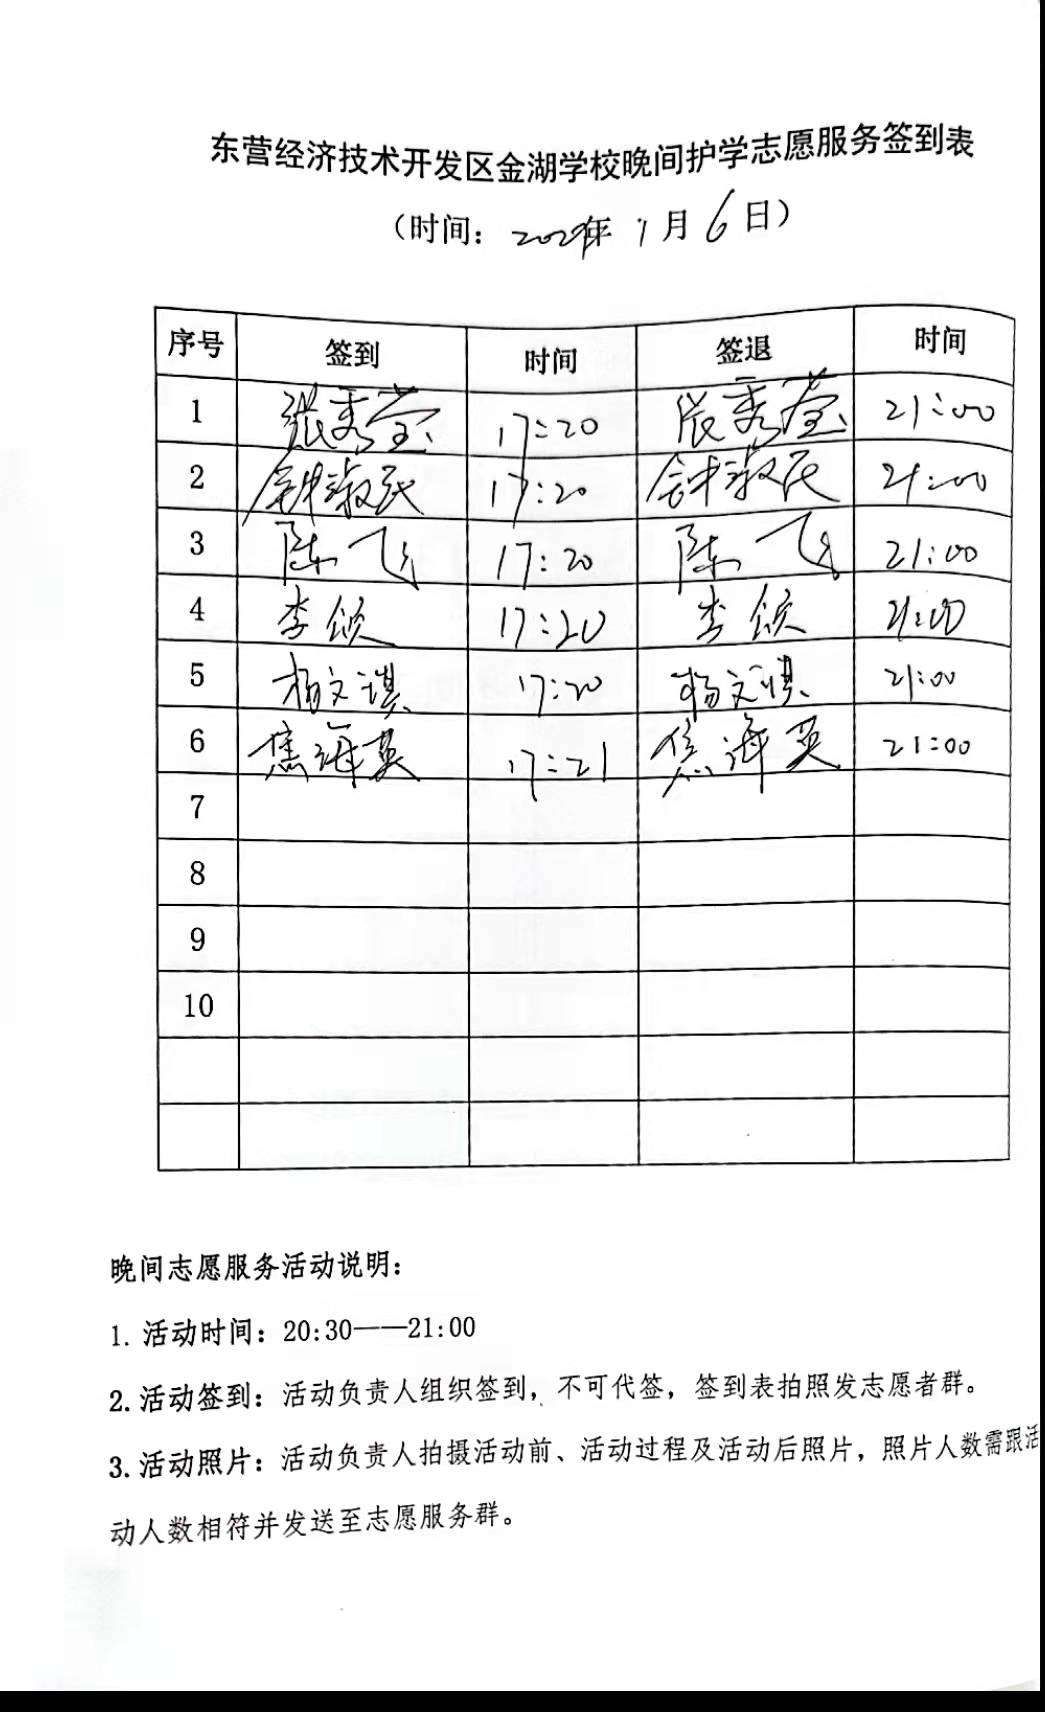 东营经济技术开发区金湖学校晚间护学志愿服务签到表
（时间：年 1月6日）
序号 签到 时间 签退 时间
1 张秀莹 17:20 张秀莹 21:00
2 钟淑民 17:20 钟淑民 21:00
3 陈飞 17:20 陈飞 21:00
4 李颂 17:20 李颂 21:00
5 杨文淇 17:20 杨文淇 21:00
6 焦海英 17:21 焦海英 21:00
7
8
9
10
晚间志愿服务活动说明：
1. 活动时间：20:30——21:00
2. 活动签到：活动负责人组织签到，不可代签，签到表拍照发志愿者群。
3. 活动照片：活动负责人拍摄活动前、活动过程及活动后照片，照片人数需跟活
动人数相符并发送至志愿服务群。